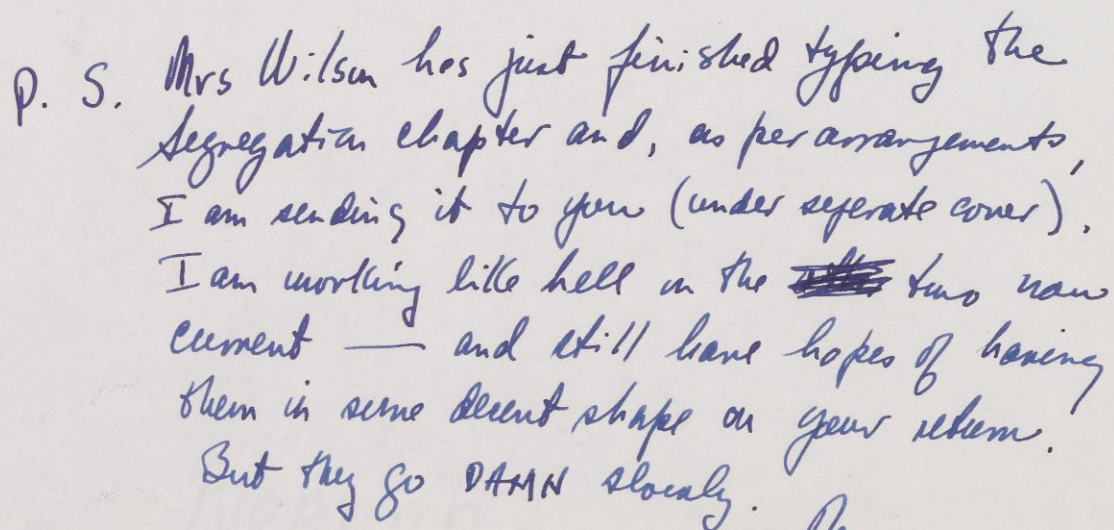 P. S. Mrs Wilson has just finished typing the
Segregation chapter and, as per arrangements,
I am sending it to you (under seperate cover).
I am working like hell on the two now
current — and still have hopes of having
them in some decent shape on your return.
But they go DAMN slowly.